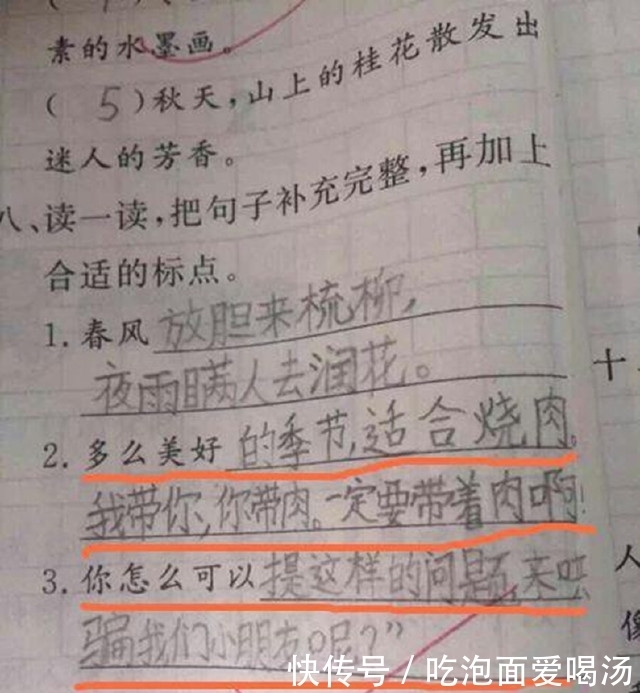 素的水墨画。
(5)秋天,山上的桂花散发出
迷人的芳香。
八、读一读,把句子补充完整,再加上
合适的标点。
1.春风放胆来梳柳,
夜雨瞒人去润花。
2.多么美好的季节,适合烧肉。
我带你,你带肉。一定要带着肉啊!
3.你怎么可以提这样的问题,来哄
骗我们小朋友呢?”
十
人
像
快传号/吃泡面爱喝汤